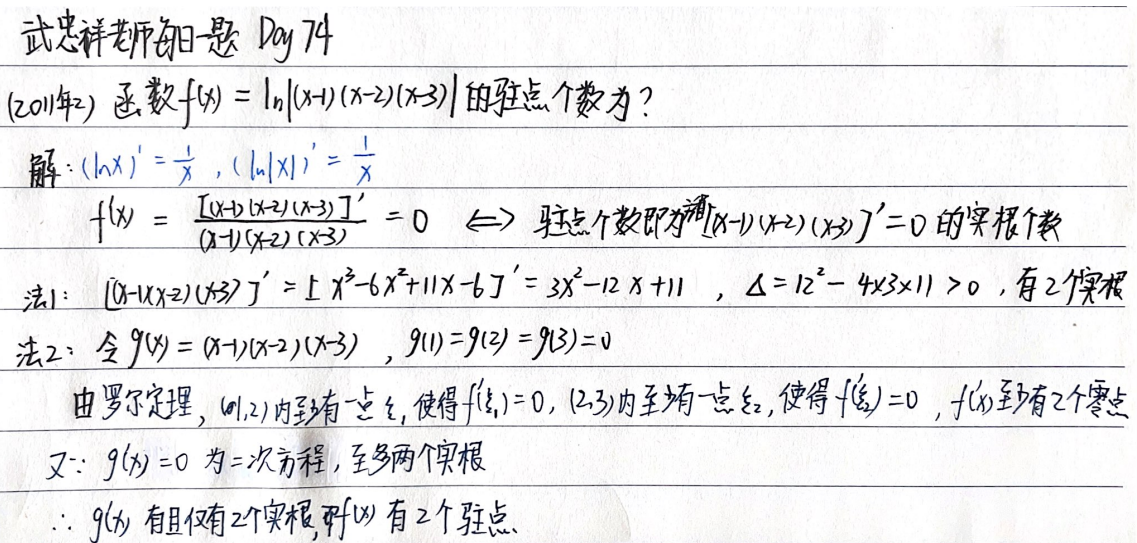 武忠祥老师每日一题 Day 74
(2011年2) 函数f(x) = ln|(x-1)(x-2)(x-3)| 的驻点个数为?
解: (lnx)' = 1/x , (ln|x|)' = 1/x
f'(x) = [(x-1)(x-2)(x-3)]' / (x-1)(x-2)(x-3) = 0 <=> 驻点个数即为[(x-1)(x-2)(x-3)]' = 0 的实根个数
法1: [(x-1)(x-2)(x-3)]' = [x³-6x²+11x-6]' = 3x²-12x+11 , Δ = 12² - 4×3×11 > 0 , 有2个实根
法2: 令 g(x) = (x-1)(x-2)(x-3) , g(1) = g(2) = g(3) = 0
由罗尔定理, (1,2)内至少有一点ξ₁, 使得f'(ξ₁) = 0, (2,3)内至少有一点ξ₂, 使得f'(ξ₂) = 0 , f'(x)至少有2个零点
又∵ g'(x) = 0 为二次方程, 至多两个实根
∴ g'(x) 有且仅有2个实根, 即f(x) 有2个驻点.